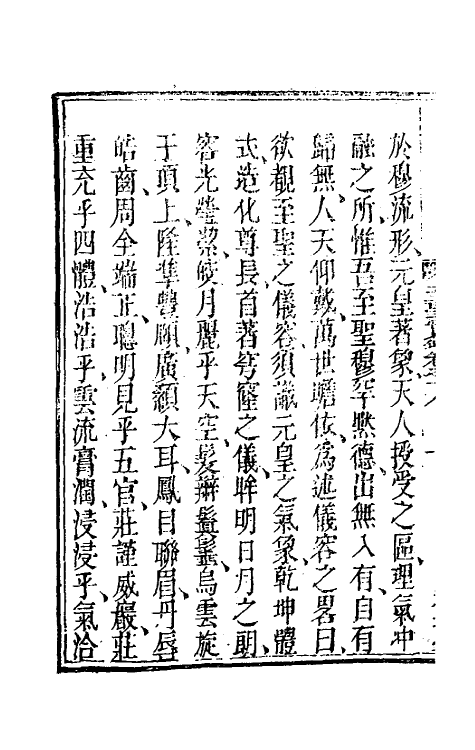 於穆流形元皇著象天人授受之區理氣冲
融之所惟吾至聖穆罕黙德出無入有自有
歸無人天仰戴萬世瞻依為述儀容之畧曰
欲觀至聖之儀容須識元皇之氣象乾坤體
式造化尊長首著穹窿之儀眸明日月之朗
容光瑩潔皎月麗乎天空髮辮鬖髿烏雲旋
于頂上隆準豐頤廣額大耳鳳目聯眉丹唇
皓齒周全端正聰明見乎五官莊謹威嚴莊
重充乎四體浩浩乎雲流膏潤浸浸乎氣洽